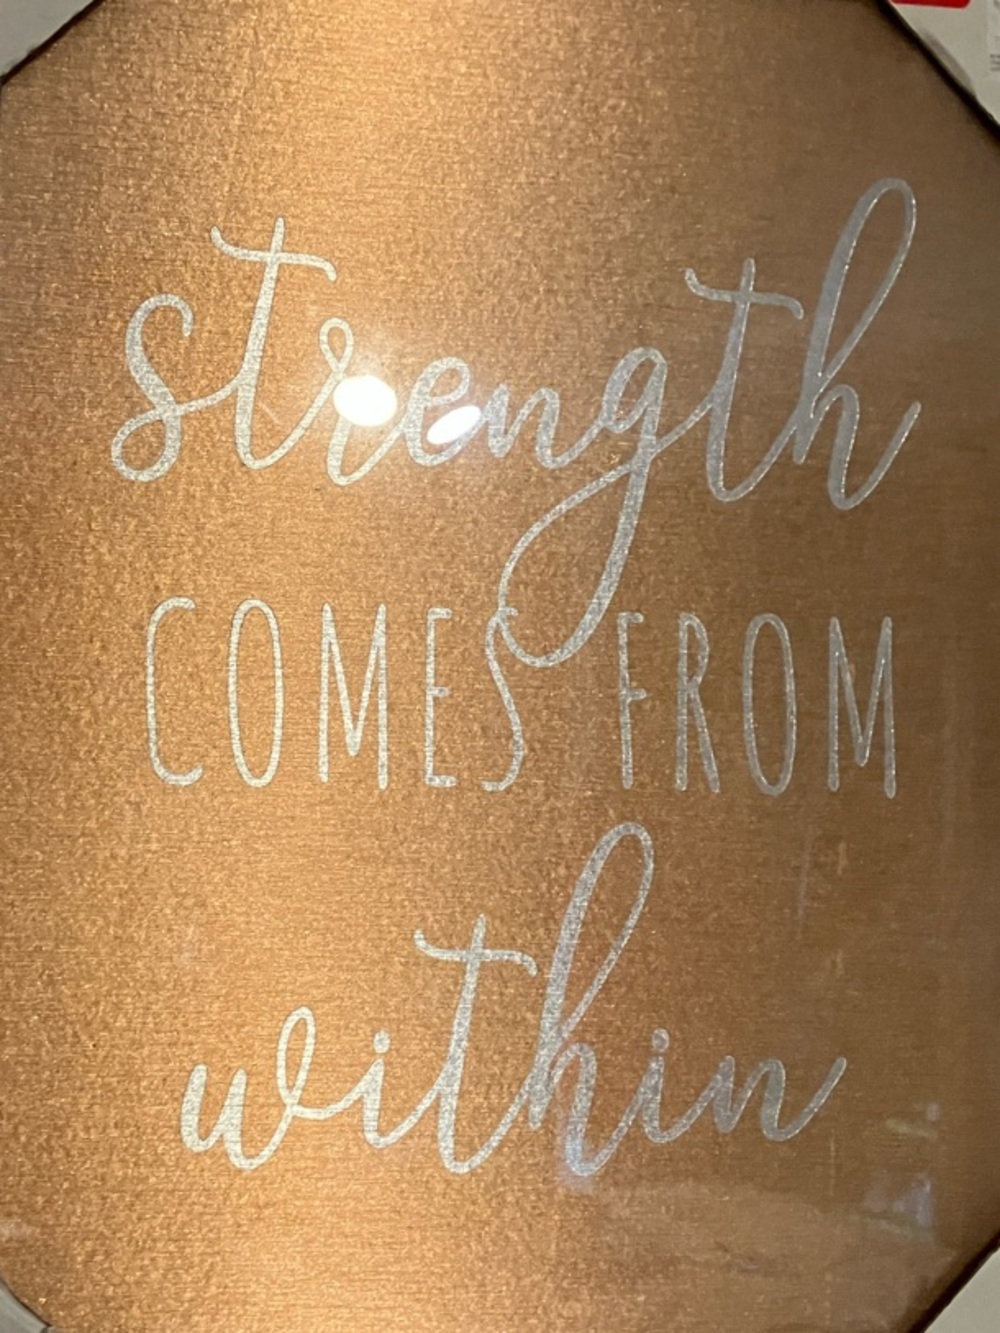 strength
COMES FROM
within